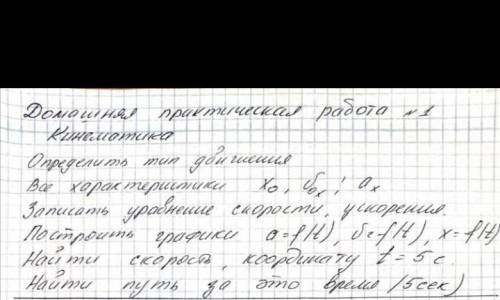 Домашняя практическая работа №1
Кинематика
Определить тип движения
Все характеристики x₀, υ₀ₓ; aₓ
Записать уравнение скорости, ускорения.
Построить графики a=f(t), υ=f(t), x=f(t)
Найти скорость, координату t=5 с.
Найти путь за это время (5 сек)